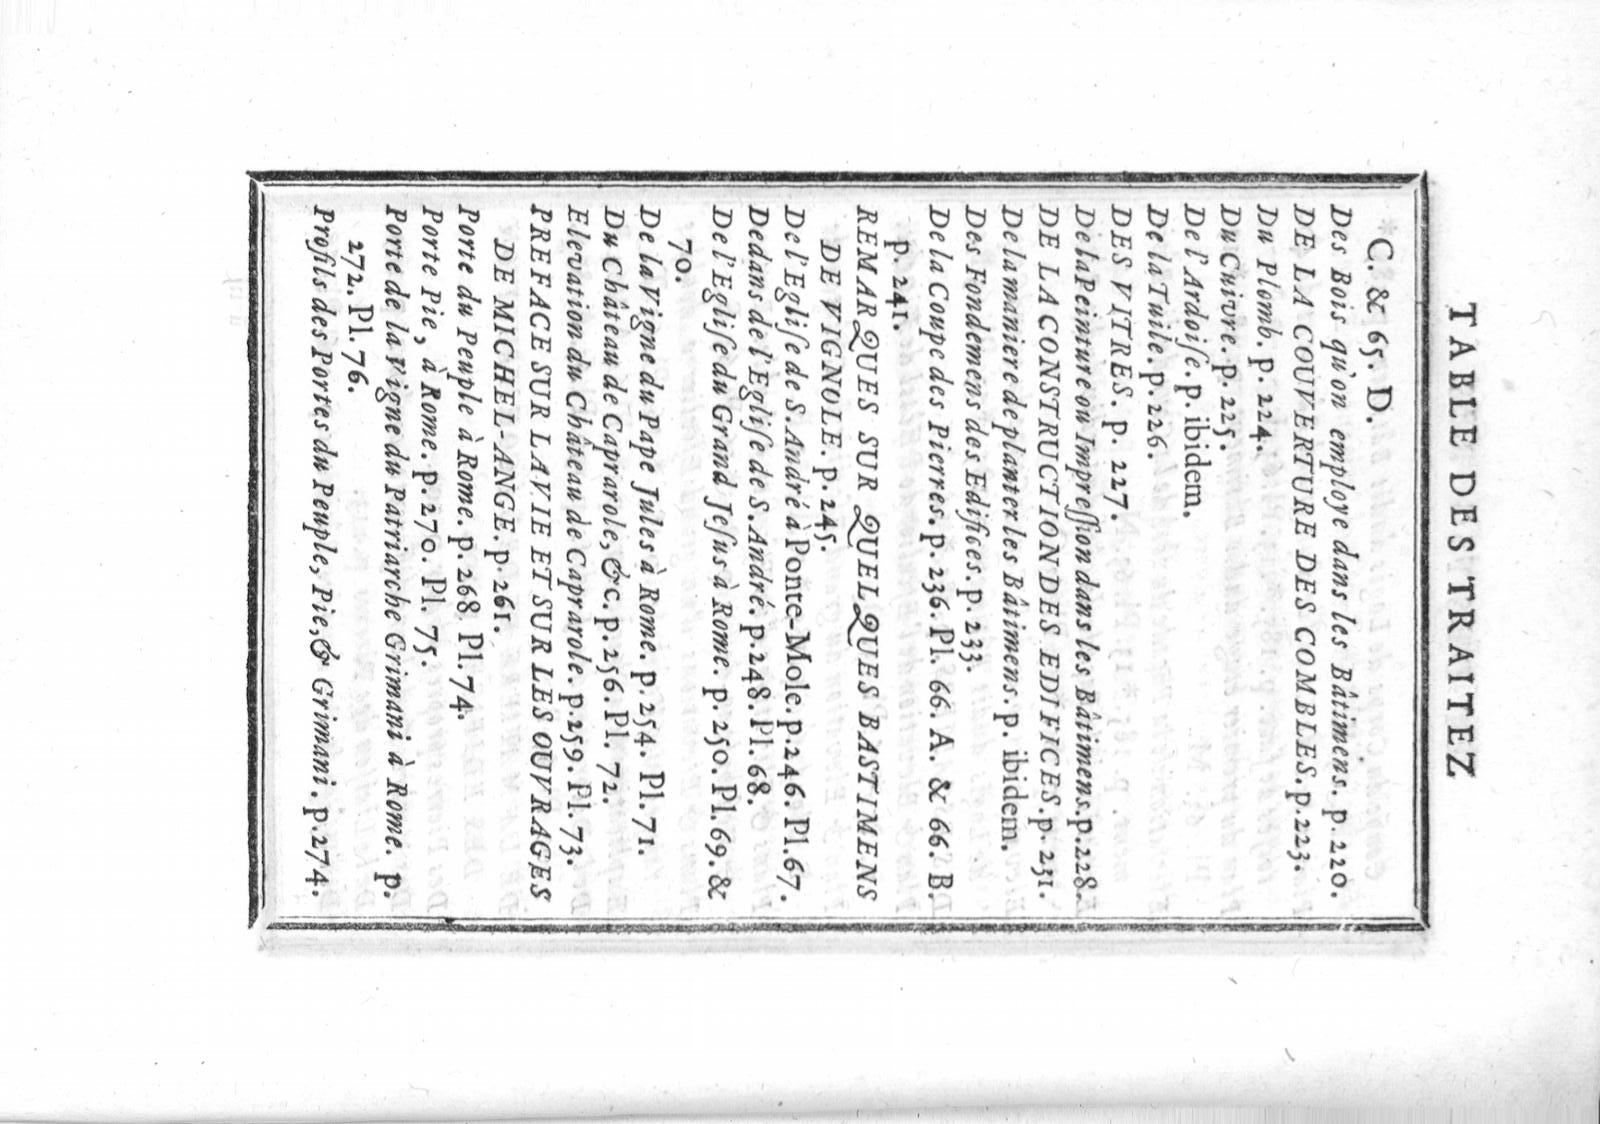 TABLE DES TRAITEZ
C. & 65. D.
Des Bois qu'on employe dans les Bâtimens. p. 220.
DE LA COUVERTURE DES COMBLES. p. 223.
Du Plomb. p. 224.
Du Cuivre. p. 225.
De l'Ardoiſe. p. ibidem.
De la Tuile. p. 226.
DES VITRES. p. 227.
De la Peinture ou Impreſſion dans les Bâtimens. p. 228.
DE LA CONSTRUCTION DES EDIFICES. p. 231.
De la maniere de planter les Bâtimens. p. ibidem.
Des Fondemens des Edifices. p. 233.
De la Coupe des Pierres. p. 236. Pl. 66. A. & 66. B.
p. 241.
REMARQUES SUR QUELQUES BASTIMENS
DE VIGNOLE. p. 245.
De l'Egliſe de S. André à Ponte-Mole. p. 246. Pl. 67.
Dedans de l'Egliſe de S. André. p. 248. Pl. 68.
De l'Egliſe du Grand Jeſus à Rome. p. 250. Pl. 69. &
70.
De la Vigne du Pape Jules à Rome. p. 254. Pl. 71.
Du Château de Caprarole, &c. p. 256. Pl. 72.
Elevation du Château de Caprarole. p. 259. Pl. 73.
PREFACE SUR LA VIE ET SUR LES OUVRAGES
DE MICHEL-ANGE. p. 261.
Porte du Peuple à Rome. p. 268. Pl. 74.
Porte Pie, à Rome. p. 270. Pl. 75.
Porte de la Vigne du Patriarche Grimani à Rome. p.
272. Pl. 76.
Profils des Portes du Peuple, Pie, & Grimani. p. 274.